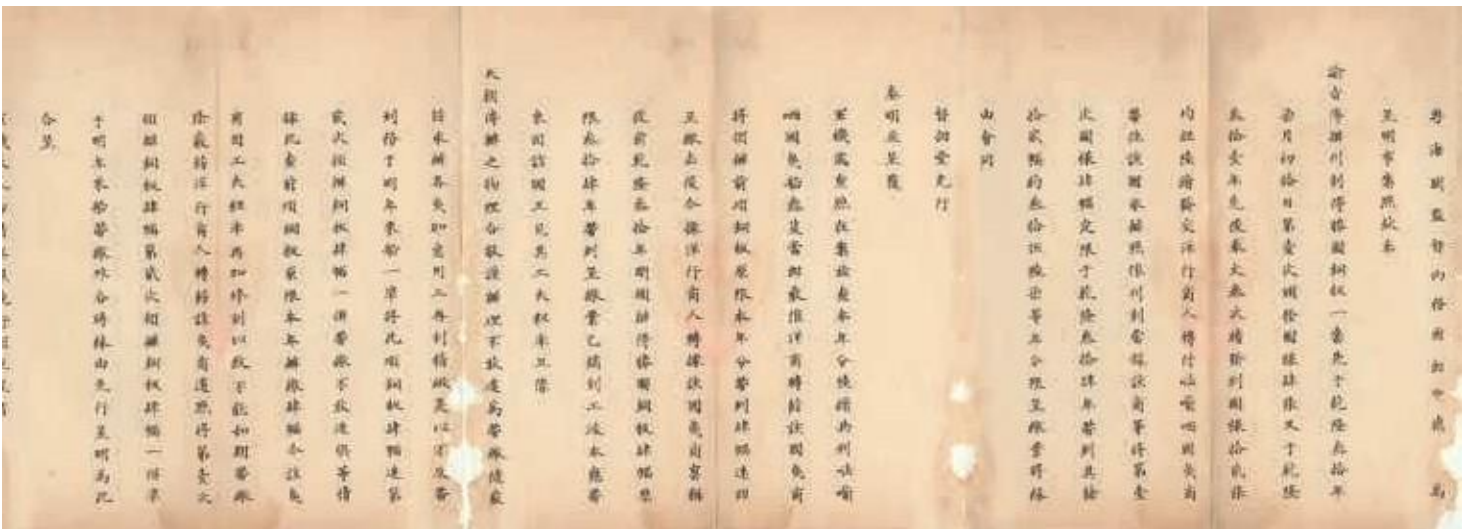 粵海關監督內務府郎中德 為
呈明事案照欽奉
諭旨傳辦刊刻得勝圖銅板一案先于乾隆叁拾年
月初拾日第壹次圖樣肆張又于乾隆
叁拾壹年先後奉文叁次續發到圖樣拾貳張
均經陸續發交洋行商人轉付哂國夷商
帶往該國承辦照樣刊刻當據該商等將第壹
次圖樣肆幅定限于乾隆叁拾肆年帶到其餘
拾貳幅約叁拾伍陸柒等年分限呈繳業將緣
由會同
督部堂先行
奏明並呈覆
軍機處察照在案茲查本年分續共到
哂國夷船叁隻當經飭催洋商轉飭該國夷商
將領辦前項銅板原限本年分帶到肆幅速即
呈繳去後今據洋行商人轉據該國夷商稟稱
從前乾隆叁拾年間領辦得勝圖銅板肆幅原
限叁拾肆年帶到呈繳業已鐫刻工竣本應帶
來因該國工匠見其工夫粗率且係
天朝傳辦之物理合敬謹辦理不敢遽為帶繳隨
承辦各夷加意用工再刻精緻是以不及帶
到俟于明年來船一準將此項銅板肆幅連第
貳次領辦銅板肆幅一併帶繳不敢遲悞等情
據此查前項銅板原限本年辦繳肆幅今該夷
商因工夫粗率再加修刻以致不能如期帶繳
除嚴飭洋行商人轉飭該夷商遵照將第壹次
領辦銅板肆幅第貳次領辦銅板肆幅一併準
于明年來船帶繳外合將緣由先行呈明為此
合呈